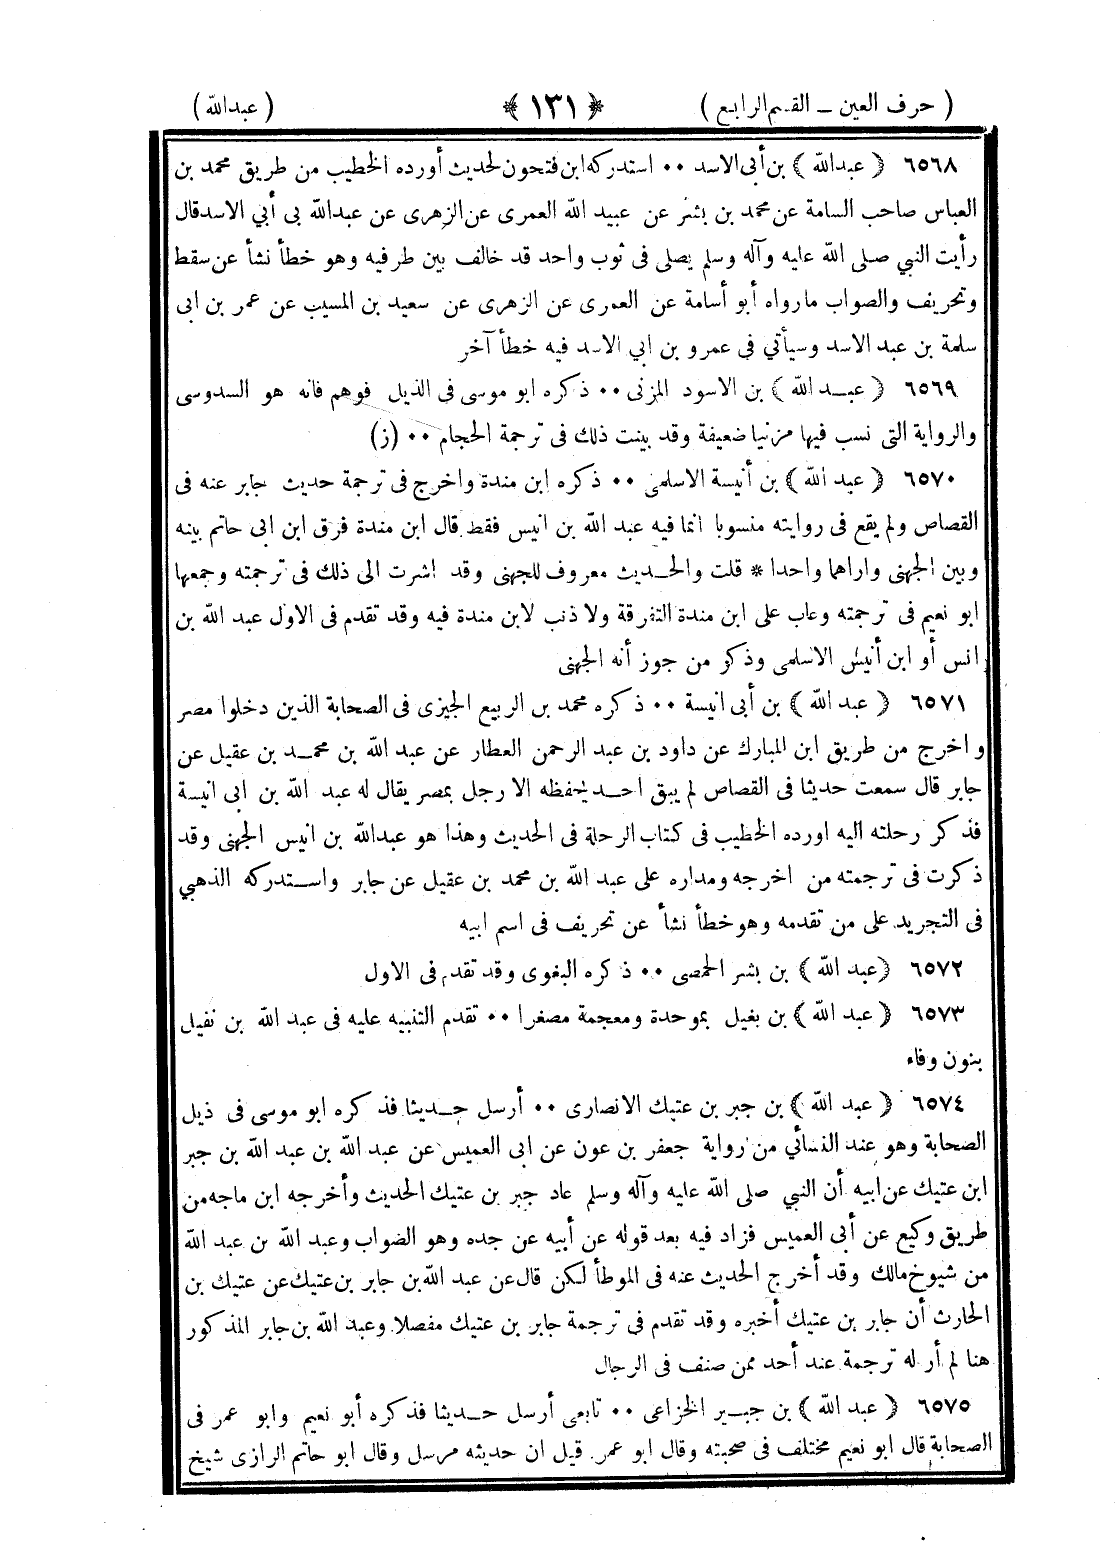 ( حرف العين ــ القسم الرابع ) ﴿ ١٣١ ﴾ ( عبدالله )
٦٥٦٨ ﴿ عبدالله ﴾ بن أبى الاسد ٠٠ استدركه ابن فتحون لحديث أورده الخطيب من طريق محمد بن
العباس صاحب السامة عن محمد بن بشر عن عبيد الله العمرى عن الزهرى عن عبدالله بى أبي الاسد قال
رأيت النبي صلى الله عليه وآله وسلم يصلى فى ثوب واحد قد خالف بين طرفيه وهو خطأ نشأ عن سقط
وتحريف والصواب مارواه أبو أسامة عن العمرى عن الزهرى عن سعيد بن المسيب عن عمر بن ابى
سلمة بن عبد الاسد وسيأتي فى عمرو بن ابي الاسد فيه خطأ آخر
٦٥٦٩ ﴿ عبـد الله ﴾ بن الاسود المزنى ٠٠ ذكره ابو موسى فى الذيل فوهم فانه هو السدوسى
والرواية التى نسب فيها مزنيا ضعيفة وقد بينت ذلك فى ترجمة الحجام ٠٠ (ز)
٦٥٧٠ ﴿ عبد الله ﴾ بن أنيسة الاسلمى ٠٠ ذكره ابن مندة واخرج فى ترجمة حديث جابر عنه فى
القصاص ولم يقع فى روايته منسوبا انما فيه عبد الله بن انيس فقط قال ابن مندة فرق ابن ابى حاتم بينه
وبين الجهنى واراهما واحدا * قلت والحـديث معروف للجهنى وقد اشرت الى ذلك فى ترجمته وجمعها
ابو نعيم فى ترجمته وعاب على ابن مندة التفرقة ولا ذنب لابن مندة فيه وقد تقدم فى الاول عبد الله بن
انس أو ابن أنيس الاسلمى وذكر من جوز أنه الجهنى
٦٥٧١ ﴿ عبد الله ﴾ بن أبى انيسة ٠٠ ذكره محمد بن الربيع الجيزى فى الصحابة الذين دخلوا مصر
واخرج من طريق ابن المبارك عن داود بن عبد الرحمن العطار عن عبد الله بن محمـد بن عقيل عن
جابر قال سمعت حديثا فى القصاص لم يبق احـد يحفظه الا رجل بمصر يقال له عبد الله بن ابى انيسة
فذكر رحلته اليه اورده الخطيب فى كتاب الرحلة فى الحديث وهذا هو عبدالله بن انيس الجهنى وقد
ذكرت فى ترجمته من اخرجه ومداره على عبد الله بن محمد بن عقيل عن جابر واسـتدركه الذهبي
فى التجريد على من تقدمه وهو خطأ نشأ عن تحريف فى اسم ابيه
٦٥٧٢ ﴿عبد الله ﴾ بن بشر الحمصى ٠٠ ذكره البغوى وقد تقدم فى الاول
٦٥٧٣ ﴿ عبد الله﴾ بن بغيل بموحدة ومعجمة مصغرا ٠٠ تقدم التنبيه عليه فى عبد الله بن نفيل
بنون وفاء
٦٥٧٤ ﴿ عبد الله ﴾ بن جبر بن عتيك الانصارى ٠٠ أرسل حـديثا فذكره ابو موسى فى ذيل
الصحابة وهو عند النسائي من رواية جعفر بن عون عن ابى العميس عن عبد الله بن عبد الله بن جبر
ابن عتيك عن ابيه أن النبي صلى الله عليه وآله وسلم عاد جبر بن عتيك الحديث وأخرجه ابن ماجه من
طريق وكيع عن أبى العميس فزاد فيه بعد قوله عن أبيه عن جده وهو الصواب وعبد الله بن عبد الله
من شيوخ مالك وقد أخرج الحديث عنه فى الموطأ لكن قال عن عبد الله بن جابر بن عتيك عن عتيك بن
الحارث أن جابر بن عتيك أخبره وقد تقدم فى ترجمة جابر بن عتيك مفصلا وعبد الله بن جابر المذكور
هنا لم أر له ترجمة عند أحد ممن صنف فى الرجال
٦٥٧٥ ﴿ عبد الله ﴾ بن جبـير الخزاعى ٠٠ تابعى أرسل حـديثا فذكره أبو نعيم وابو عمر فى
الصحابة قال ابو نعيم مختلف فى صحبته وقال ابو عمر قيل ان حديثه مرسل وقال ابو حاتم الرازى شيخ